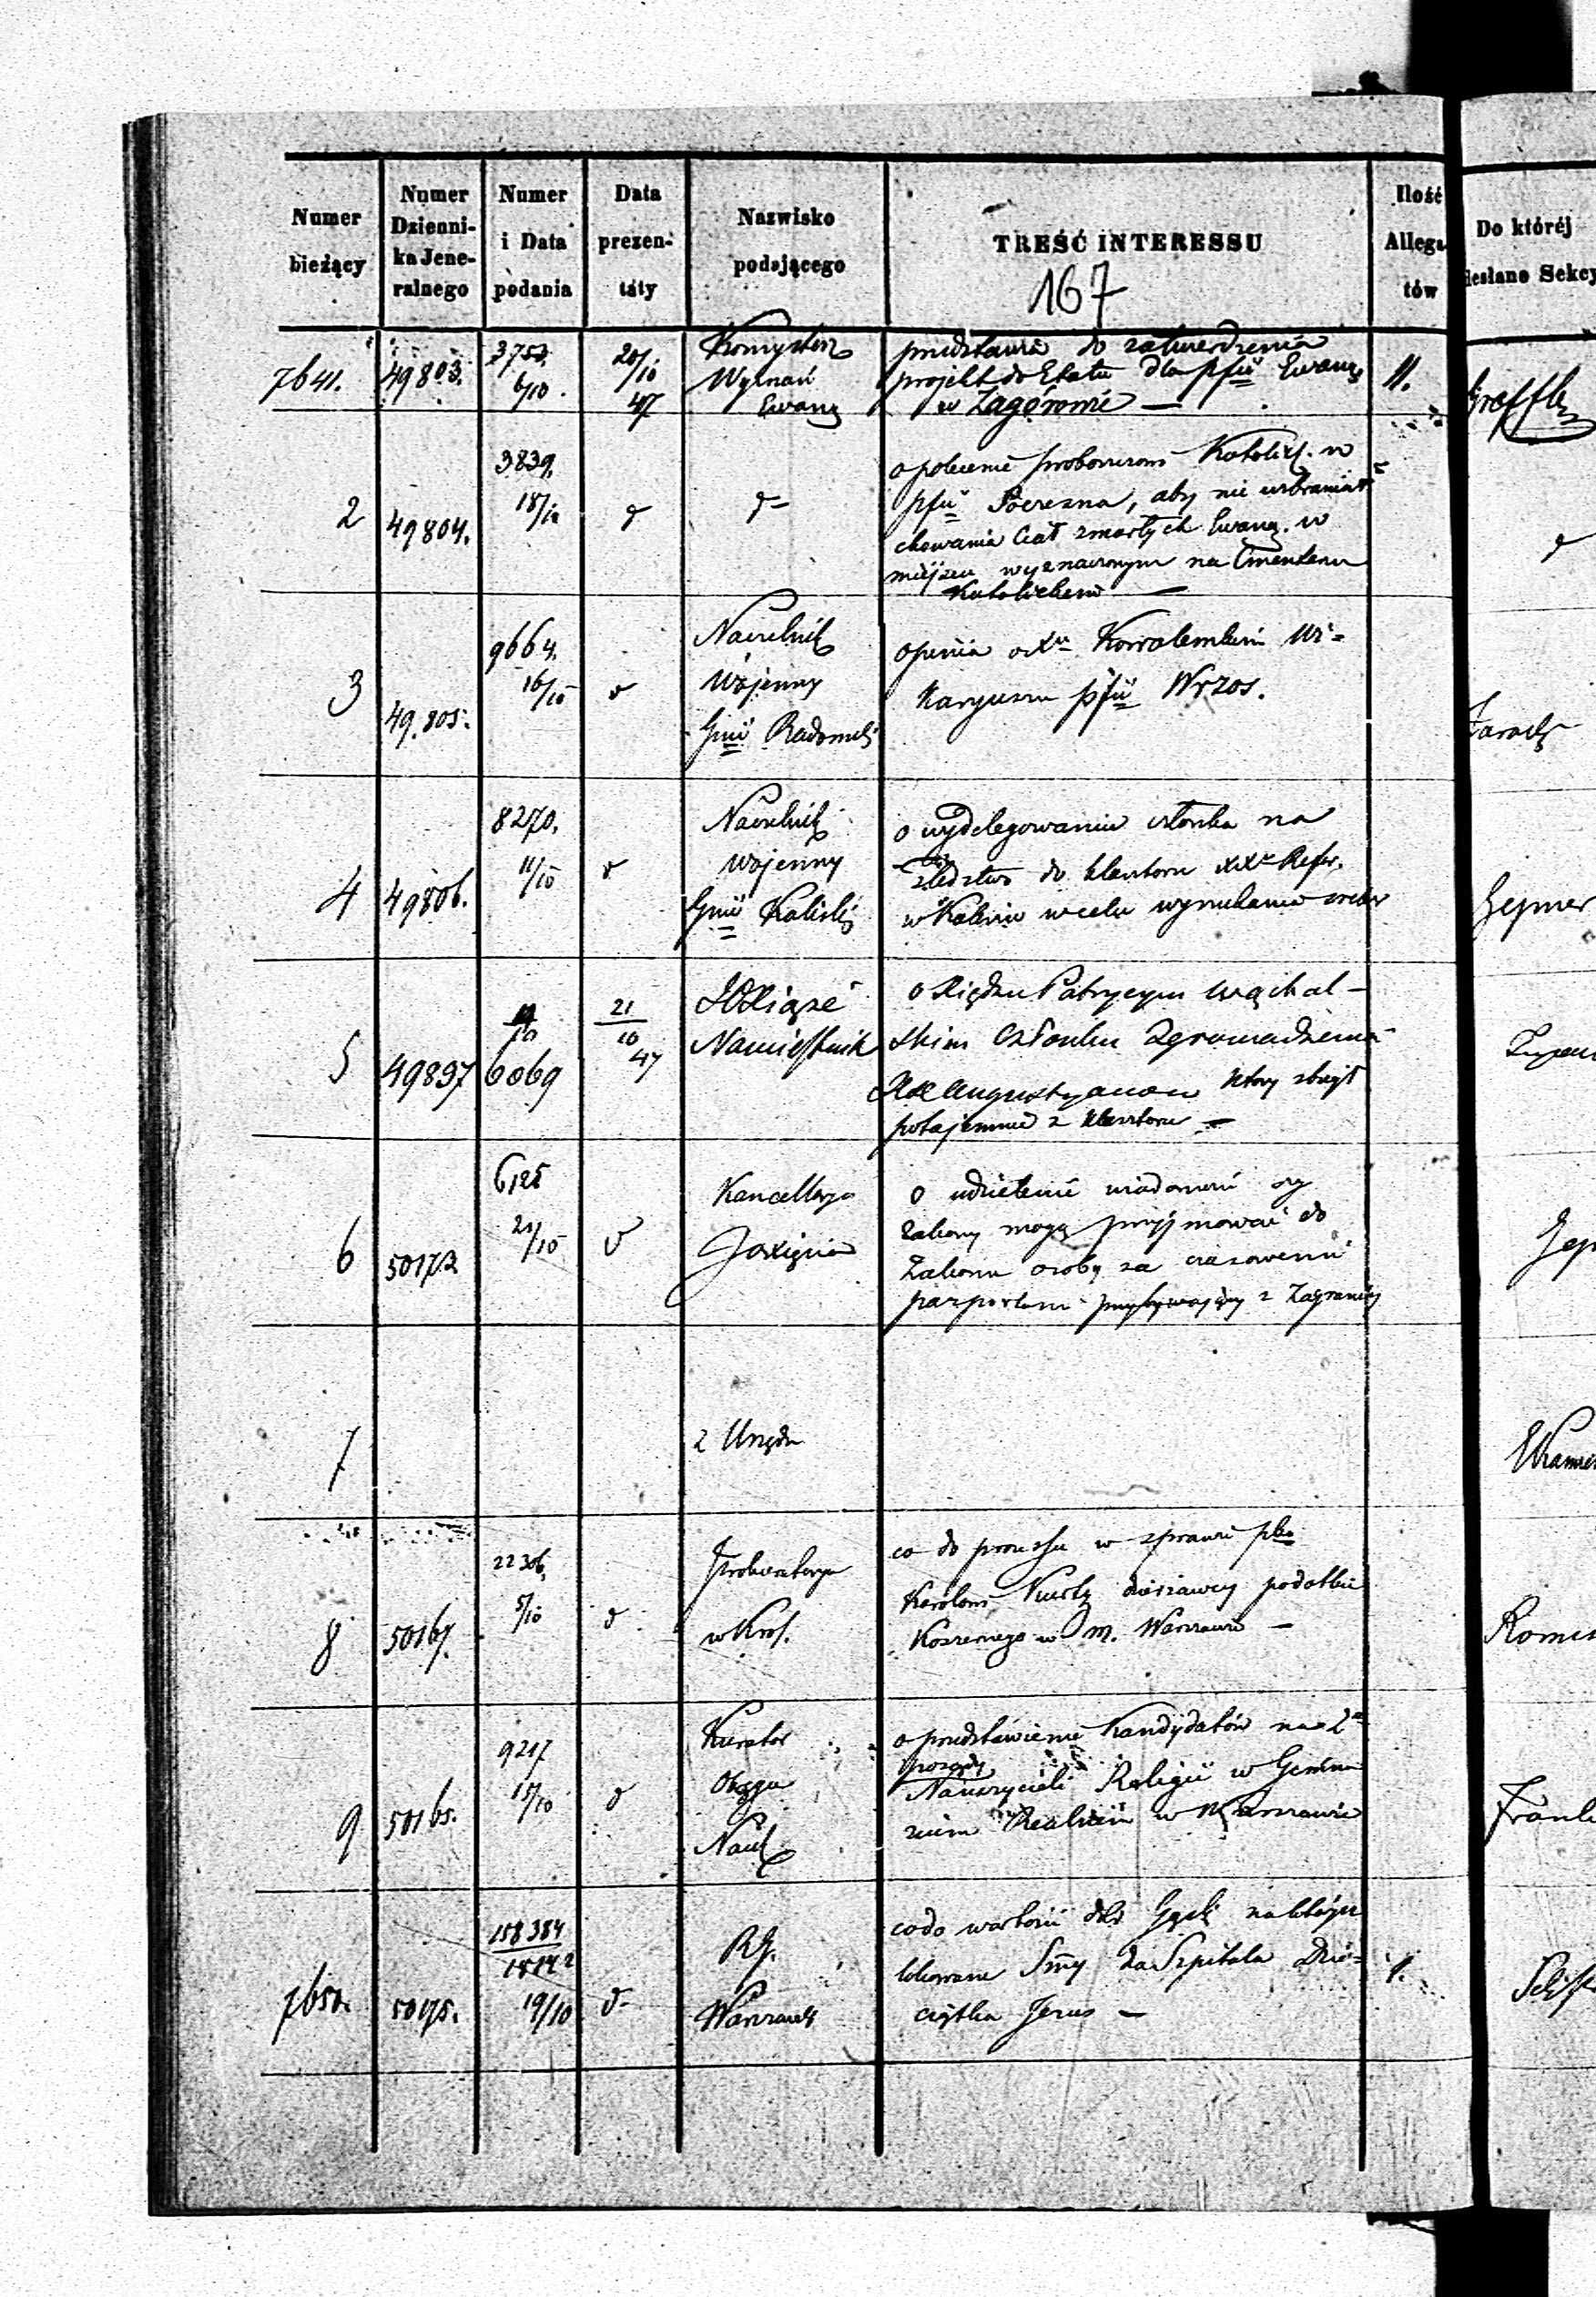 Numer bieżący
Numer Dzienni- ka Jene- ralnego
Numer i Data podania
Data prezen- taty
Nazwisko podającego
TREŚĆ INTERESSU
Ilość Allega tów
Do któréj
esłano Sekcy
167
7641. 49803. 3753. 6/10. 20/10 47
Konsystorz
Wyznań
Ewang
przedstawia do zatwierdzenia
projekt do Etatu dla pfii Ewang
w Zagórowie —
11.
2 49804. 3839. 18/10 d d-
o polecenie proboszczowi Katolick. w
pfii, aby nie wzbraniał
chowania Ciał zmarłych Ewang. w
miejscu wyznaczonym na Cmentarzu
Katolickim —
d
3 49.805. 9664. 16/10 d
Naczelnik
Wojenny
Gnii Radomsk
opinia o Xu Kowalewskim Wi=
karyuszu pfii Wrzos.
4 49806. 8270. 11/10 d
Naczelnik
Wojenny
Gnii Kaliskiej
o wydelegowanie członka na
śledztwo do klasztoru XXw Refor.
w Kaliszu w celu
Gepner
5 49897 6069 21/10 47
JO Xiąże
Namiestnik
o Xiędzu Patrycym Wąchal-
skim Członku Zgromadzenia
XX Augustyanów który zbiegł
potajemnie z klasztoru —
6 50172 6125 21/10 d
Kancellarya
JO Xięcia
o udzielenie wiadomości czy
Zakony mogą przyjmować do
Zakonu osoby za czasowemi
paszportami przybywający z Zagranicy
Gep
7
z Urzędu
8 50167. 22306. 5/10 d
Prokuratorya
w Król.
co do processu w sprawie pko
Karolowi Kurtz dzierżawcy podatku
Koszernego w m. Warszawie —
9 50165. 9217 15/10 d
Kurator
Okręgu
Nauk
o przedstawienie Kandydatów na 2e
posady
Nauczycieli Religii w Gimna
zium Realnem w Warszawie
7650. 50175. 158384 19/10 d-
RG.
Warszawsk
co do wartości dóbr na których
lokowane Smy dla Szpitala Dzie=
ciątka Jezus —
1.